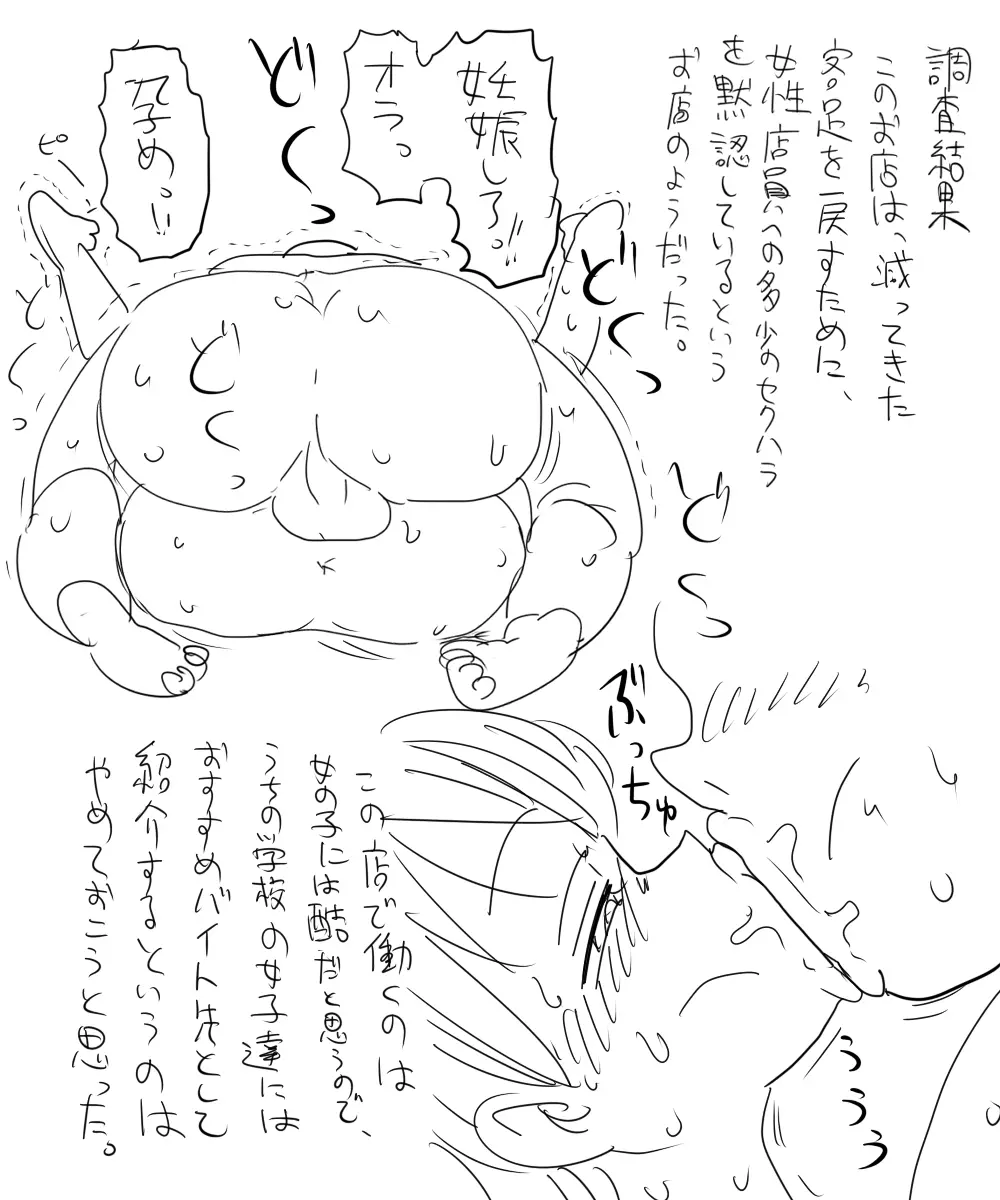 調査結果
このお店は、減ってきた
客足を戻すために、
女性店員への多少のセクハラ
を黙認しているという
お店のようだった。
妊娠しろっ!!
オラっ
孕めっ!!
ピー
どくっ
どくっ
どくっ
どくっ
ぶっちゅ
ううう
この店で働くのは
女の子には酷だと思うので、
うちの学校の女子達には
おすすめバイト先として
紹介するというのは
やめておこうと思った。